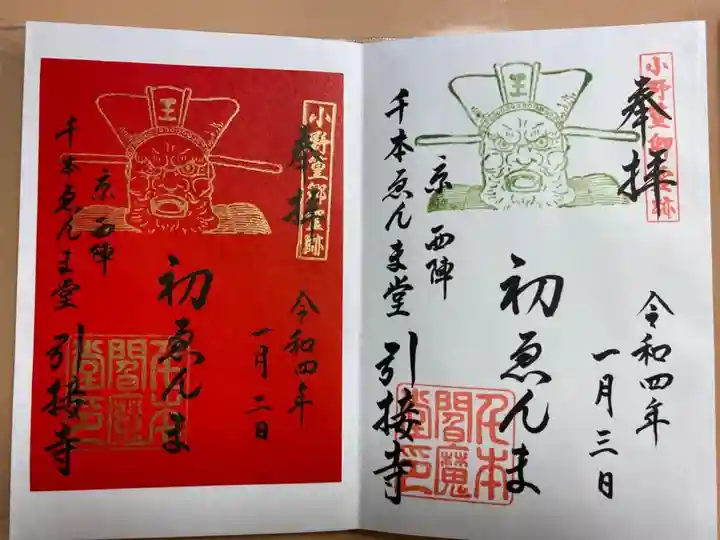 小野篁卿旧跡
奉拝
令和四年
一月二日
初ゑんま
京西陣
千本ゑんま堂
引接寺
王
千本閻魔堂印
小野篁卿旧跡
奉拝
令和四年
一月三日
初ゑんま
京西陣
千本ゑんま堂
引接寺
王
千本閻魔堂印